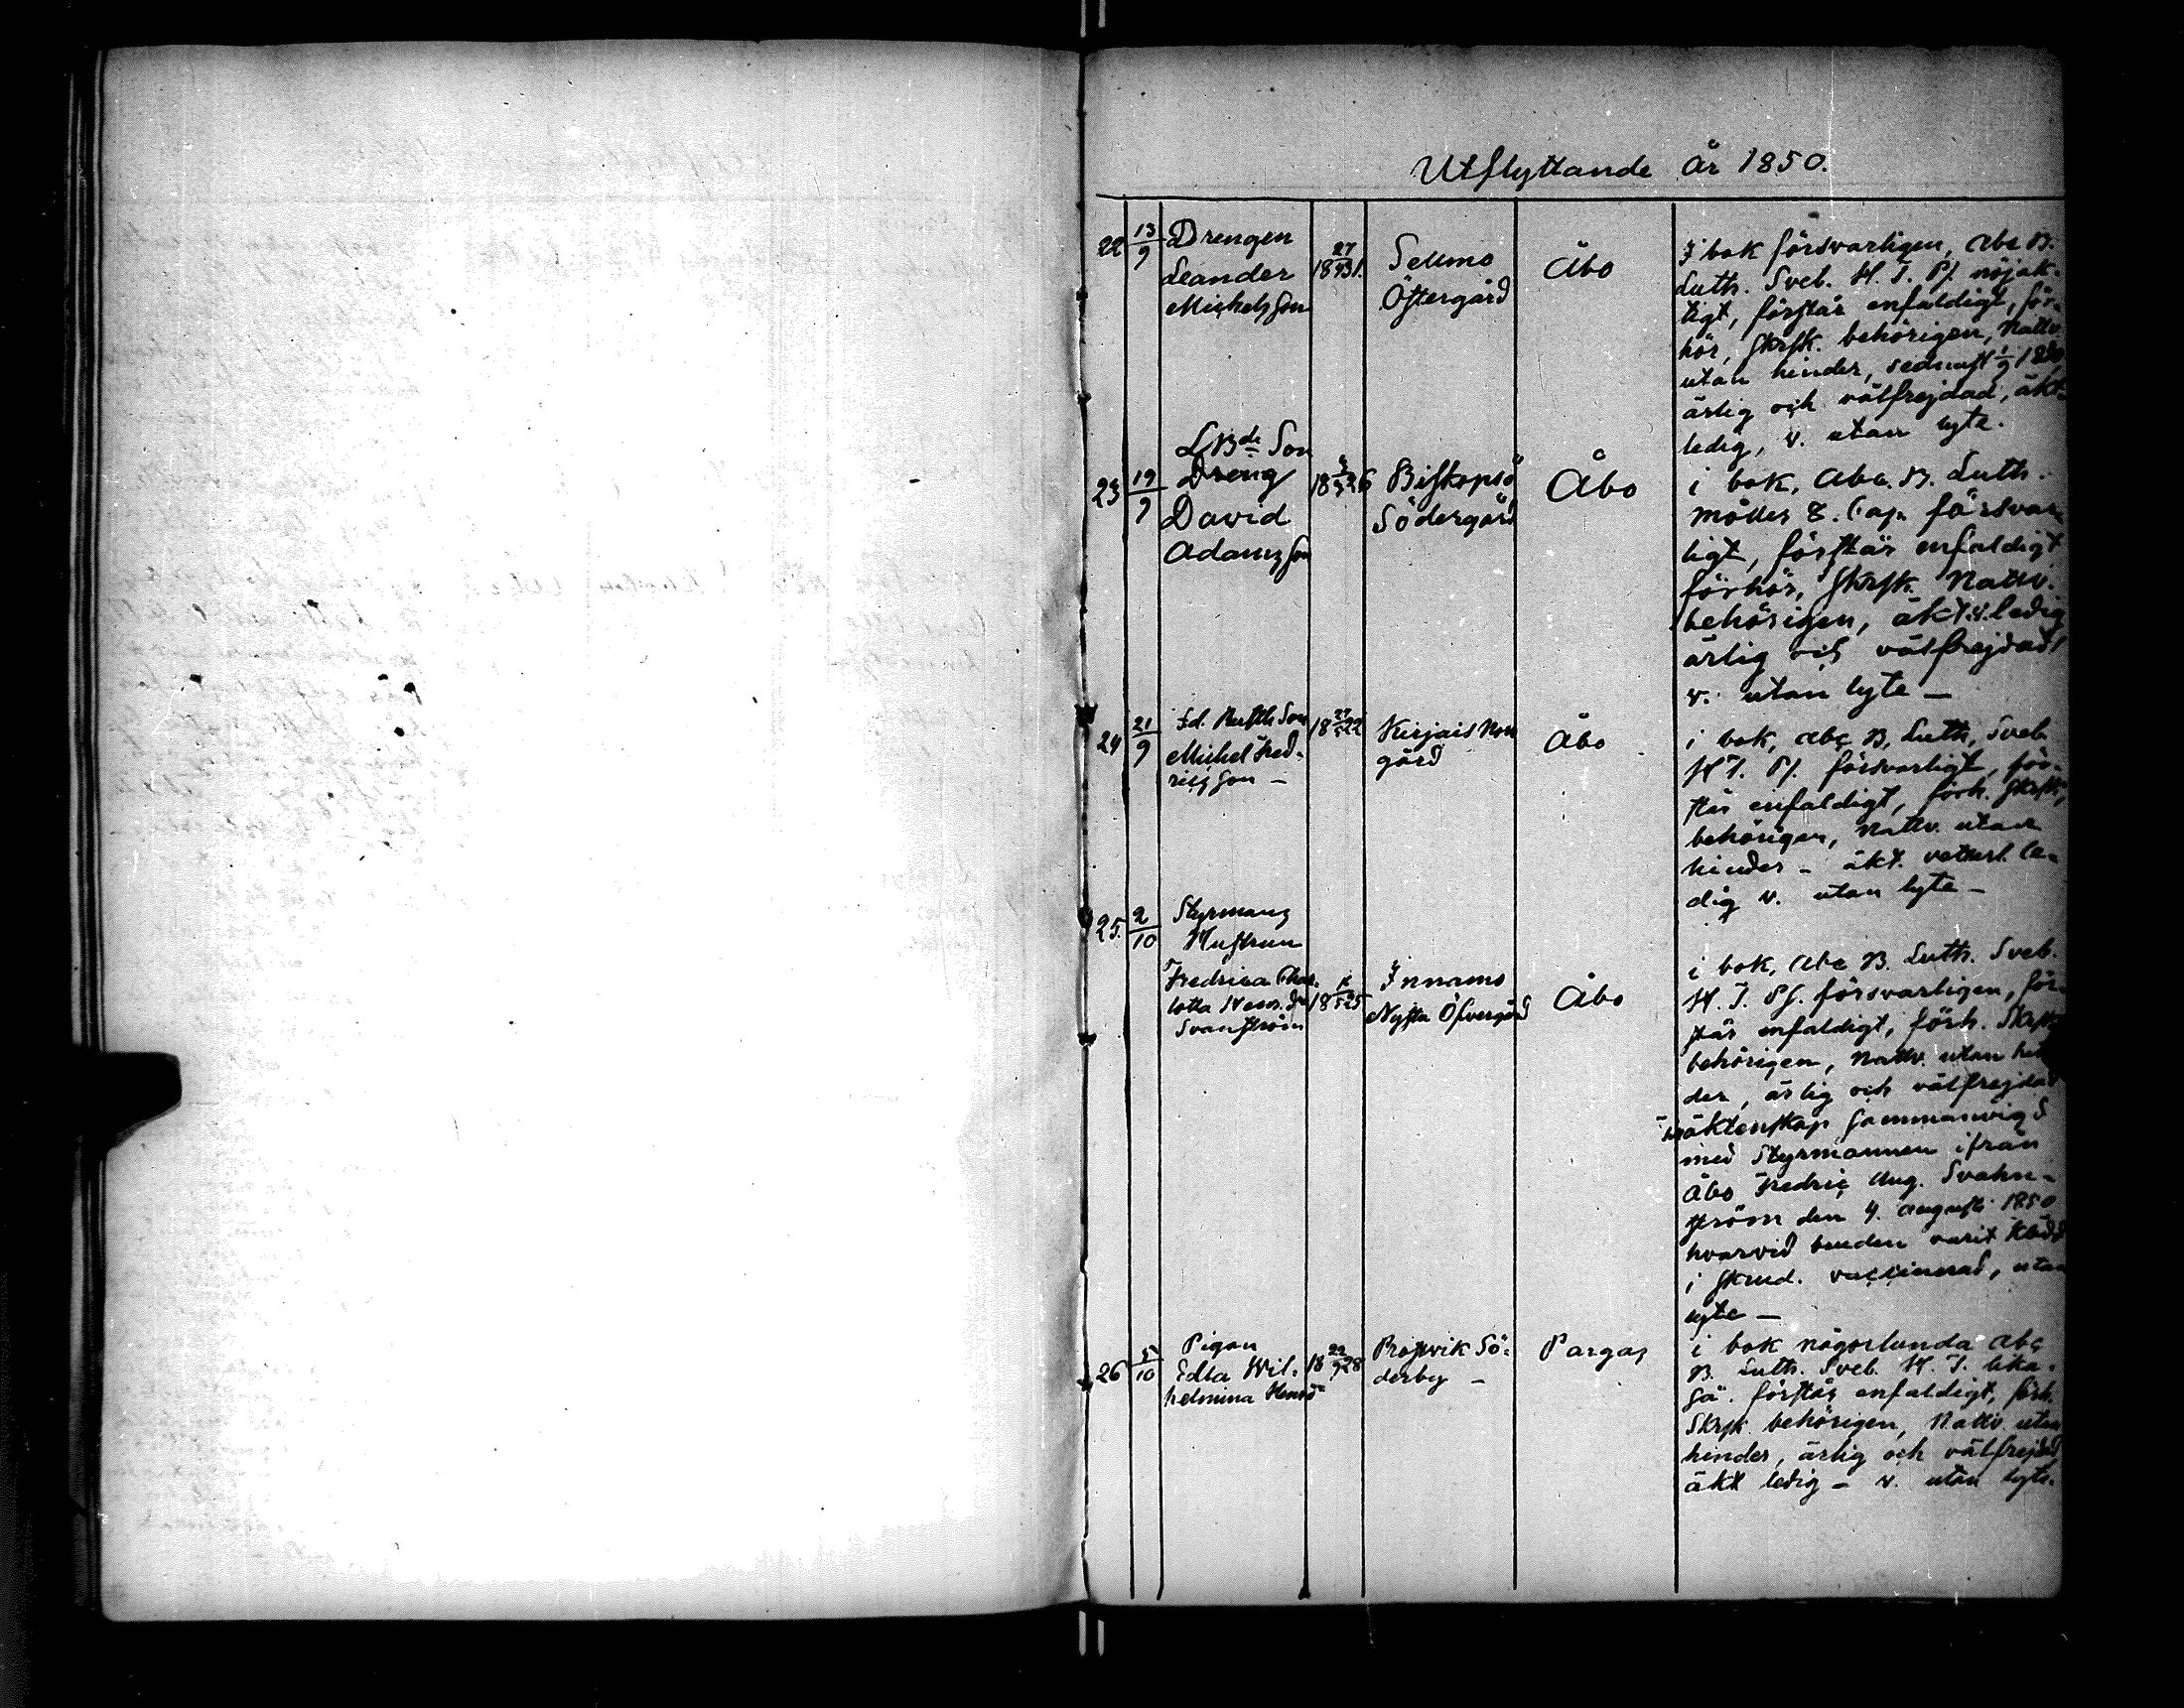 Utflyttande år 1850.
22 13/9 Drengen Leander Michelsson 18 27/9 31. Sellmo Östergård Åbo
I bok försvarligen, Abc B.
Luth. Sveb. H. T. Ps. nöjak-
tigt, förstår enfaldigt, för-
hör, skrsk. behörigen, Nattv.
utan hinder, sednast 1/9 1850
ärlig och välfrejdad, äkt.
ledig, v. utan lyte.
23 19/9 LBde Son Dreng David Adamsson 18 26 Biskopsö Södergård Åbo
i bok, Abc. B. Luth.
möller 8. Cap. försvar-
ligt, förstår enfaldigt
förhör, skrsk. Nattv.
behörigen, äkt. v. ledig
ärlig och välfrejdad,
v. utan lyte –
24 21/9 Fd. Rusth Son Michel Fredricsson – 18 27/5 22 Kirjais Norrgård Åbo
i bok, abc B, Luth, Sveb
H T. Ps. försvarligt, för-
står enfaldigt, förh. skrsk,
behörigen, Nattv. utan
hinder – äkt. vetterl. le-
dig v. utan lyte –
25. 2/10 Styrmans Hustrun Fredrica Char-lotta Svanström 18 25 Innamo Nysta Öfvergård Åbo
i bok, Abc B. Luth. Sveb.
H. T. Ps. försvarligen, för-
står enfaldigt, förh. Skrsk
behörigen, Nattv. utan hin
der, ärlig och välfrejdad
äktenskap sammanvigd
med Styrmannen ifrån
Åbo Fredric Aug. Svahn-
ström den 4. augusti 1850
hvarvid bruden varit klädd
i skrud. vaccinerad, utan
lyte –
26 5/10 Pigan Edla Wil-helmina Henrd 18 22/9 28 Prostvik Sö-derby – Pargas
i bok någorlunda abc
B. Luth. Sveb. H. T. lika-
så. förstår enfaldigt, förh.
Skrsk behörigen, Nattv utan
hinder, ärlig och välfrejdad
äkt ledig – v. utan lyte.